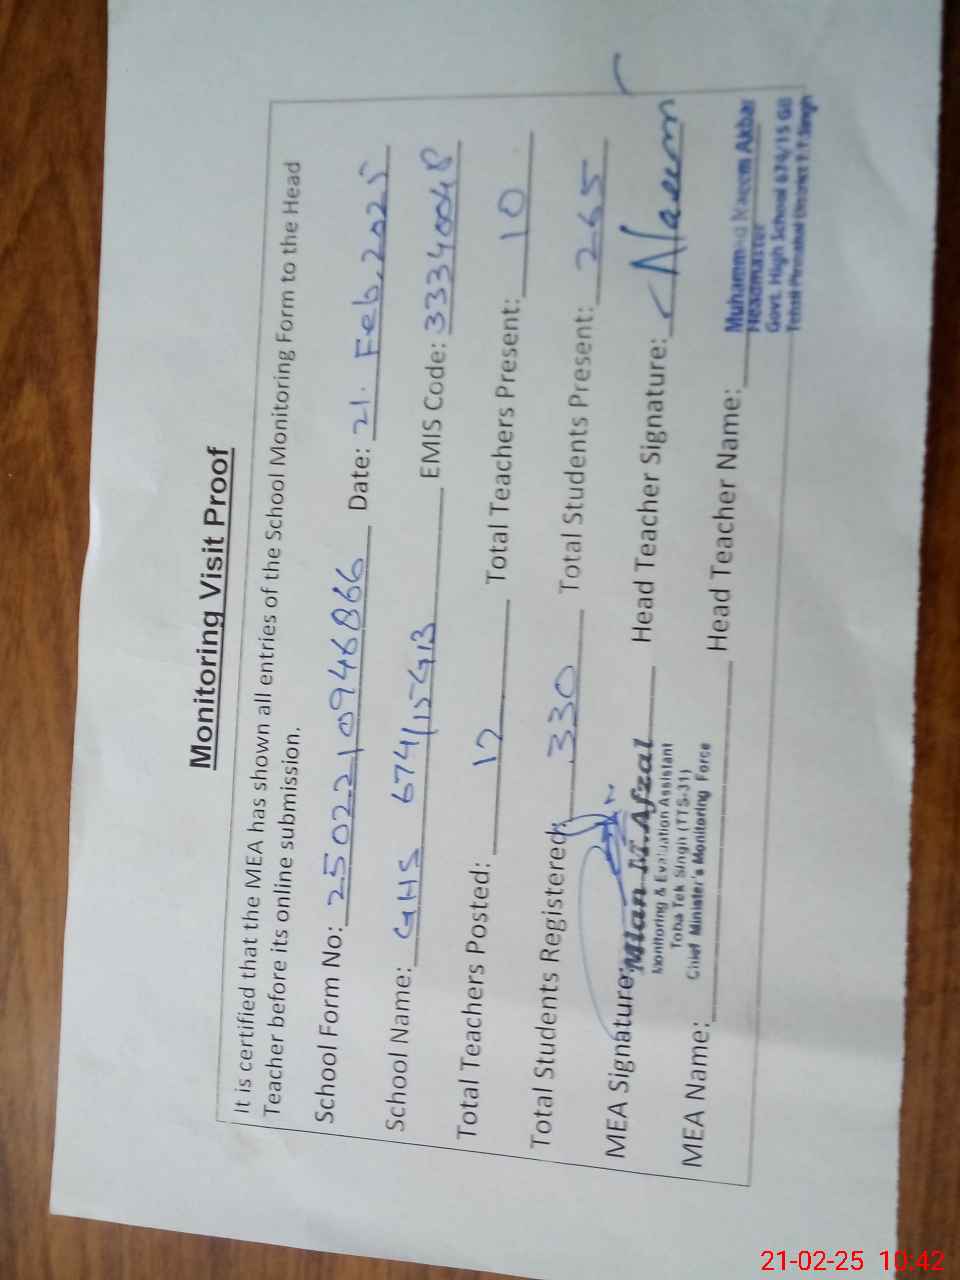 Monitoring Visit Proof
It is certified that the MEA has shown all entries of the School Monitoring Form to the Head
Teacher before its online submission.
School Form No: 2502210946866 Date: 21. Feb, 2025
School Name: GHS 674/15GB EMIS Code: 33340048
Total Teachers Posted: 12 Total Teachers Present: 10
Total Students Registered: 330 Total Students Present: 265
MEA Signature: Head Teacher Signature: Naeem
Mian M.Afzal
Monitoring & Evaluation Assistant
Toba Tek Singh (TTS-31)
Chief Minister's Monitoring Force
MEA Name: Head Teacher Name:
Muhammad Naeem Akbar
Headmaster
Govt. High School 674/15 GB
Tehsil Pirmahal District T.T.Singh
21-02-25 10:42